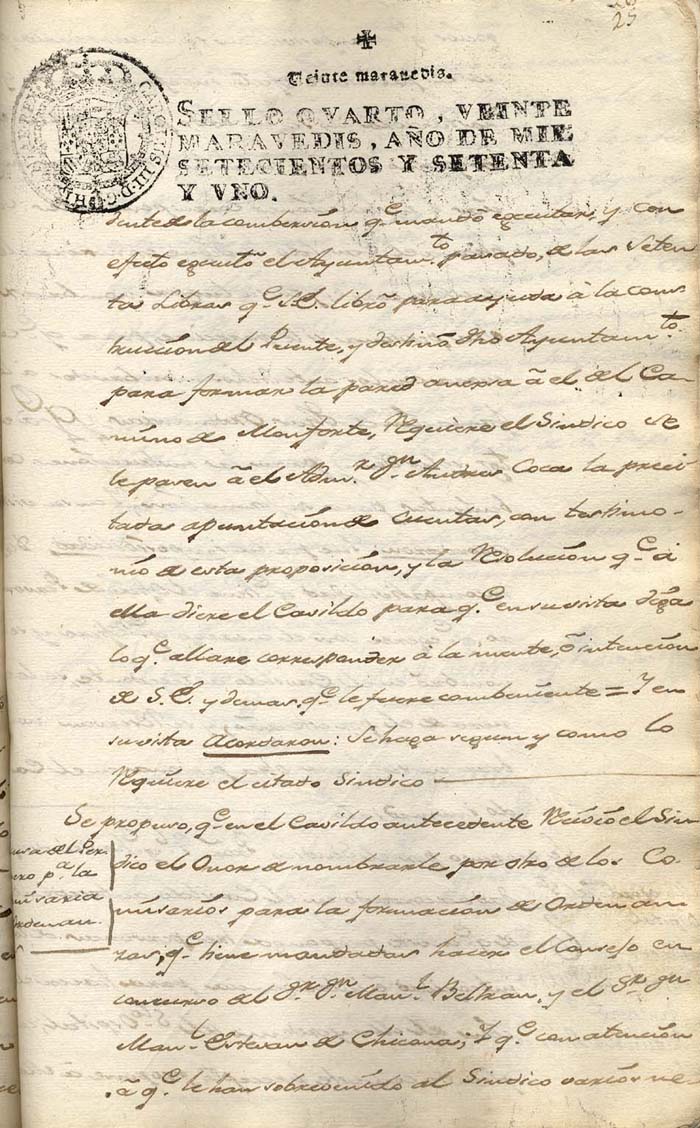 25
Veinte maravedis.
SELLO QVARTO, VEINTE
MARAVEDIS, AÑO DE MIL
SETECIENTOS Y SETENTA
Y VNO.
CAROLUS III D G
de la combersion q.e mandó egecutar, y con
efecto egecutó el Ayuntam.to pasado, de las seten
ta Libras q.e S.E. libró para ayuda à la cons
truccion del Puente, y destinó dho Ayuntam.to
para formar la pared aversa à el del Ca-
mino de Monforte, Requiere el Sindico se
le pasen à el Adm.r D.n Andres Coca la preci
tada apuntacion de cuentas, con testimo-
nio de esta proposicion, y la Resolucion q.e à
ella diere el Cavildo para q.e en su vista diga
lo q.e allare corresponder à la mente, ò intencion
de S.E. y demas q.e le fuere combeniente = Y en
su vista Acordaron: Se haga segun y como lo
Requiere el citado Sindico
Se propuso, q.e en el Cavildo antecedente Recivió el Sin
dico el Onor de nombrarle por otro de los Co
misarios para la formacion de Ordenan
zas, q.e tiene mandadas hacer el Consejo en
concurso del S.r D.n Man.l Beltran, y el S.r D.n
Man.l Estevan de Chicona; Y q.e con atencion
à q.e le han sobrevenido al Sindico varios ne
p.a la
misaria
ordenan.